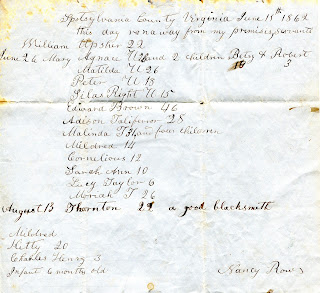 Spotsylvania County Virginia June 18th 1862
this day runaway from my premises, servants
William Upsher 22
June 26 Mary Agnace U 26 and 2 children Betsy & Robert
3
Matilda U 26
Peter U 13
Silas Right U 15
Edward Brown 46
Adison Taliferror 28
Malinda T 34 and four children
Mildred 14
Cornelious 12
Sarah Ann 10
Lucy Taylor 6
Moriah T 26
August 13 Thornton 29 a good blacksmith
Mildred
Hetty 20
Charles Henry 3
Infant 6 months old
Nancy Row